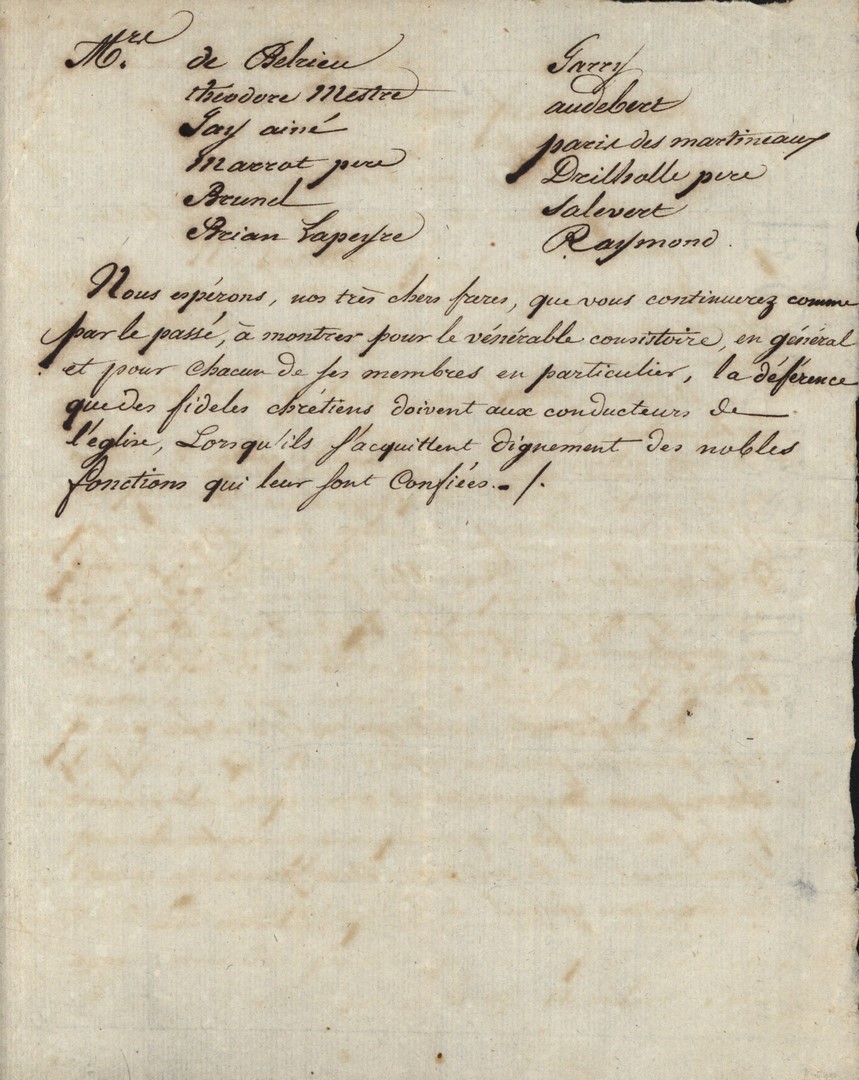 Mrs. de Belrieu
theodore Mestre
Gay ainé
Marrot pere
Brunel
Brian Lapeyre
Garry
audebert
paris des martineaux
Drilholle pere
Salevert
Raymond.
Nous espérons, nos très chers freres, que vous continuerez comme
par le passé, à montrer pour le vénérable consistoire, en général
et pour chacun de ses membres en particulier, la déférence
que des fideles chrétiens doivent aux conducteurs de
l'église, Lorsqu'ils s'acquittent dignement des nobles
fonctions qui leur sont Confiées. - /.